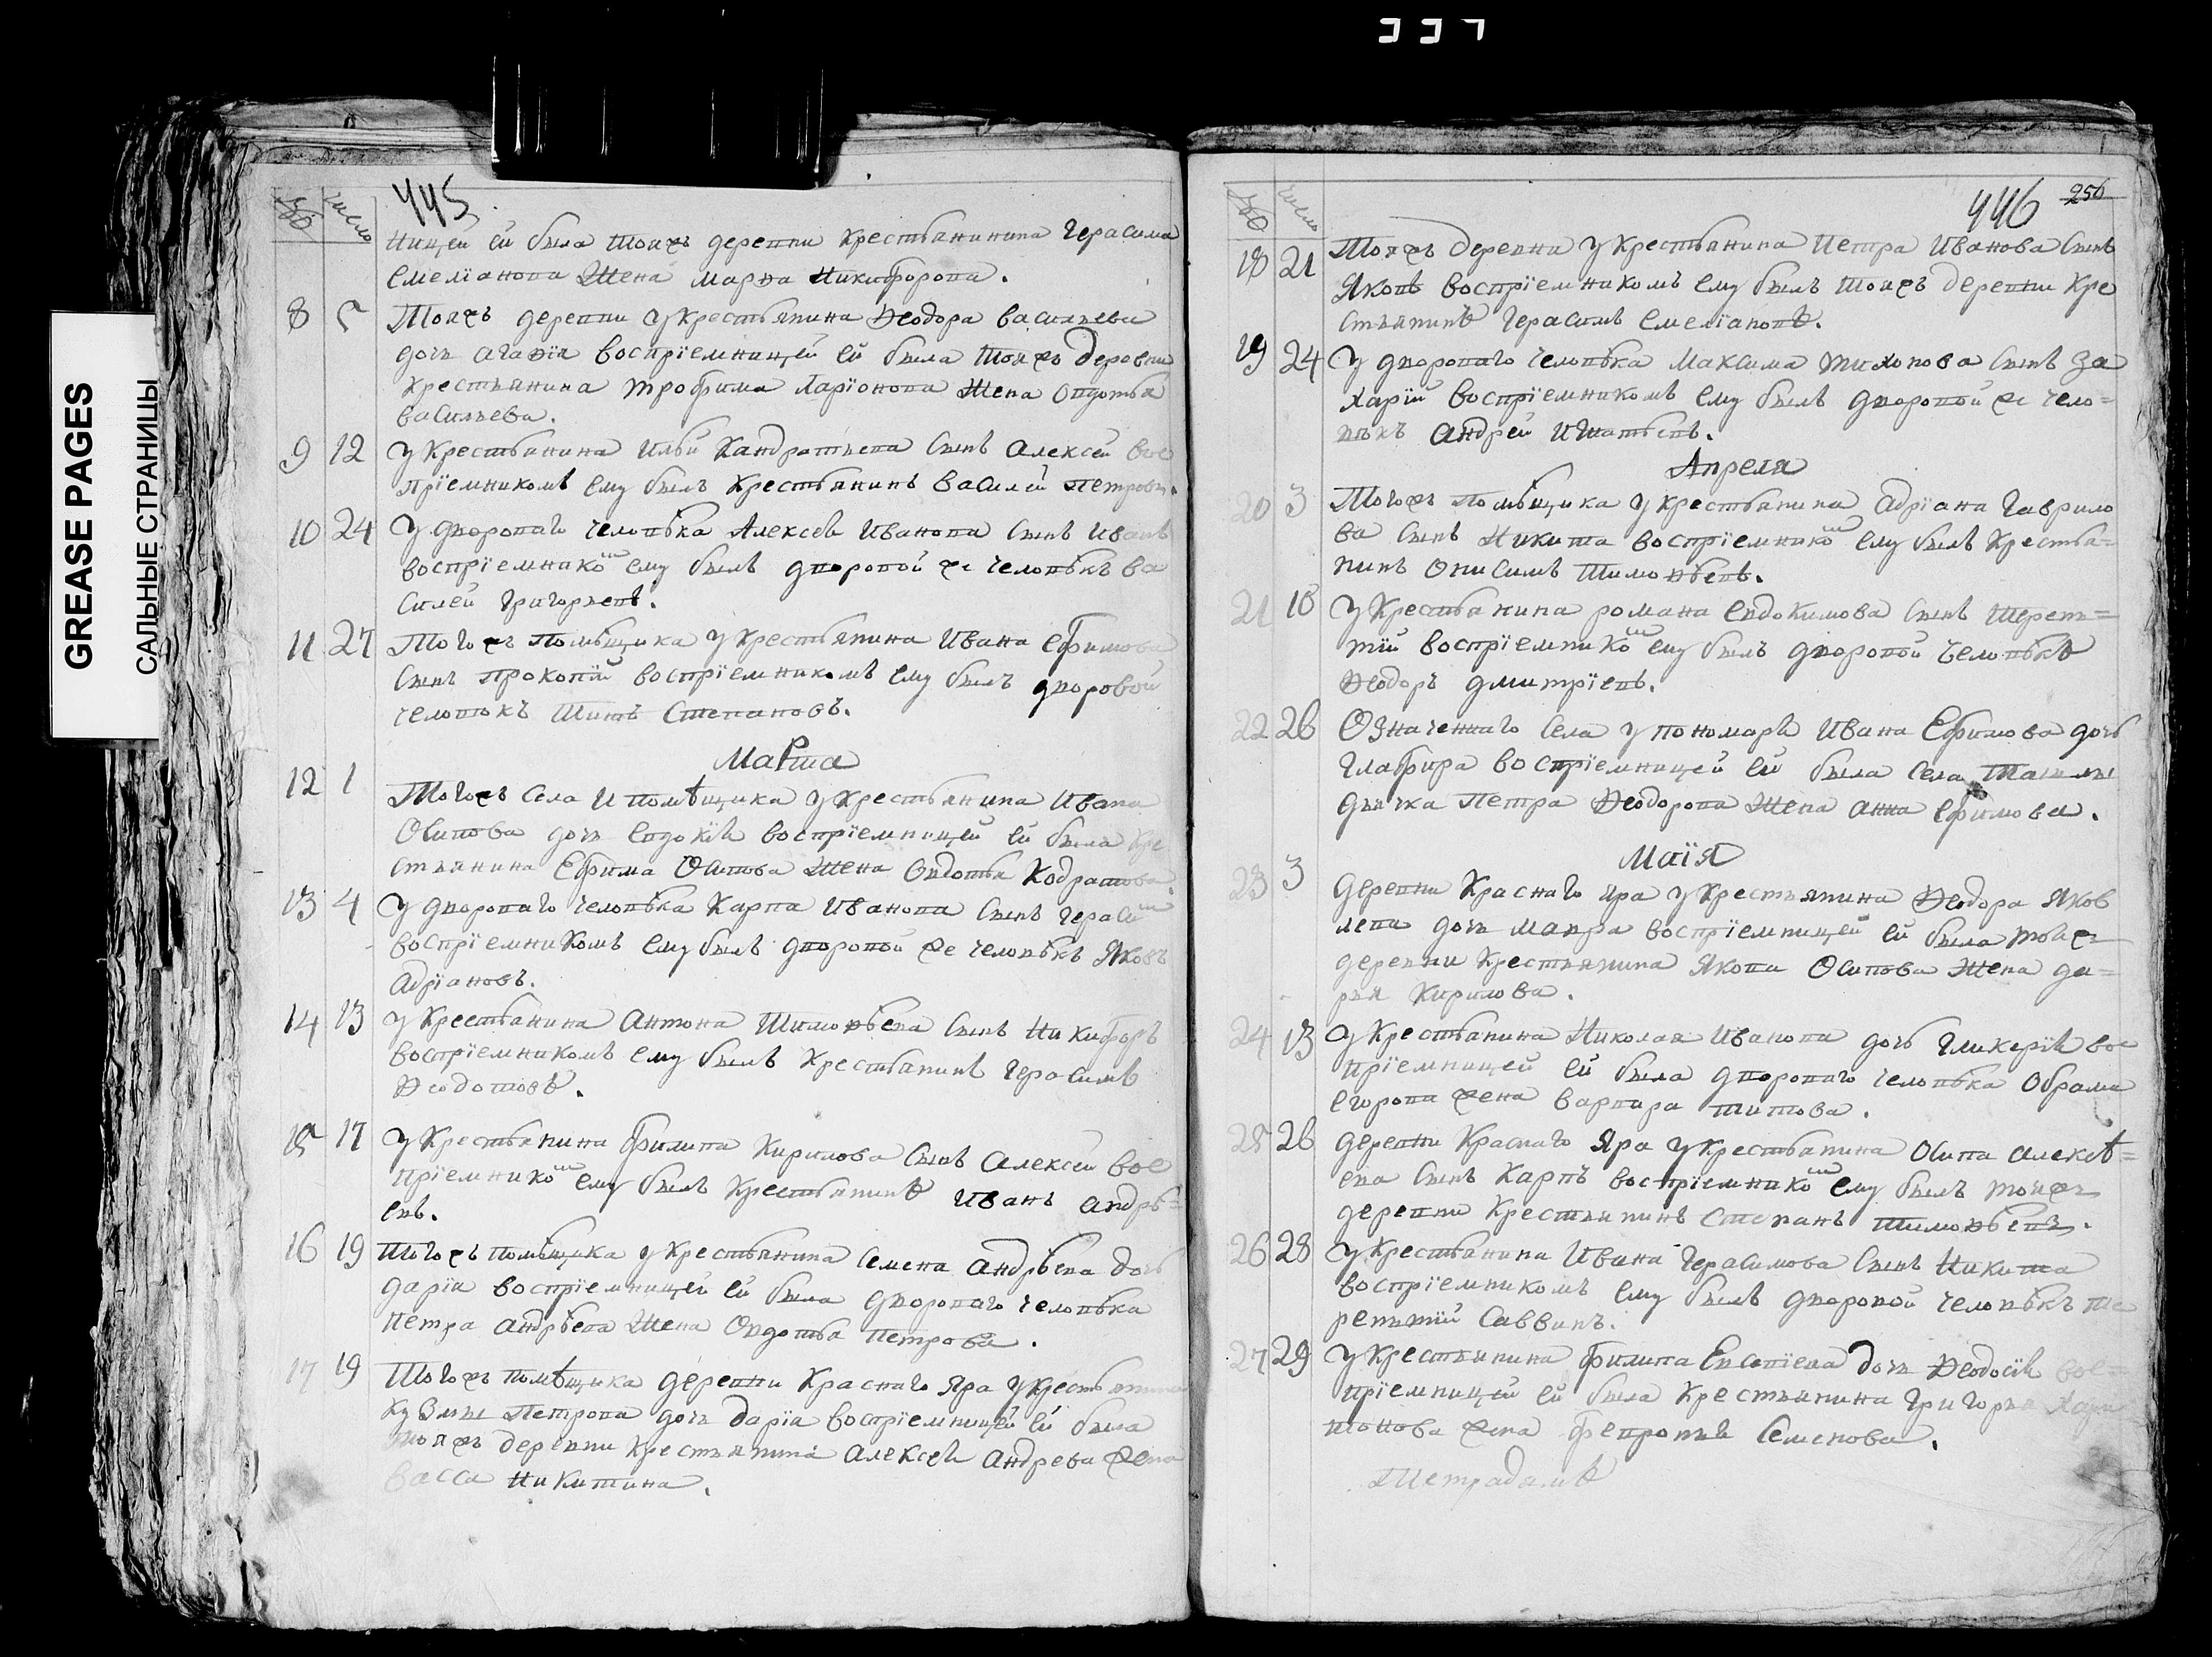 GREASE PAGES
САЛЬНЫЕ СТРАНИЦЫ
445
число
ницей ей была тояжъ деревни крестьянинина Герасима
Емелїанова жена Марѳа Никифорова.
8 5 Тояжъ деревни у крестьянина Ѳеодора Васильева
дочь Агаѳїя воспрїемницей ей была тояжъ деревни
крестьянина Трофима Ларїонова жена Овдотья
Васильева.
9 12 У крестьянина Ильи Кандратьева сынъ Алексей вос
прїемникомъ ему былъ крестьянинъ Василей Петровъ.
10 24 У двороваго человѣка Алексѣя Иванова сынъ Иванъ
воспрїемникомъ ему былъ дворовой же человѣкъ Ва
силей Григорьевъ.
11 27 Тогожъ помѣщика у крестьянина Ивана Ефимова
сынъ Прокопїй воспрїемникомъ ему былъ дворовой
человѣкъ Титъ Степановъ.
Марта
12 1 Тогожъ села и помѣщика у крестьянина Ивана
Осипова дочь Евдокїя воспрїемницей ей была кре
стьянина Ефима Осипова жена Овдотья Кодратова.
13 4 У двороваго человѣка Карпа Иванова сынъ Герасимъ
воспрїемникомъ ему былъ дворовой же человѣкъ Яковъ
Адрїановъ.
14 13 У крестьянина Антона Тимоѳѣева сынъ Никифоръ
воспрїемникомъ ему былъ крестьянинъ Герасимъ
Ѳеодотовъ.
15 17 У крестьянина Филипа Кирилова сынъ Алексей вос
прїемникомъ ему былъ крестьянинъ Иванъ Андрѣ=
евъ.
16 19 Тогожъ помѣщика у крестьянина Семена Андрѣева дочь
Дарїя воспрїемницей ей была двороваго человѣка
Петра Андрѣева жена Овдотья Петрова.
17 19 Тогожъ помѣщика деревни Краснаго Яра у крестьянина
Кузмы Петрова дочь Дарїа воспрїемницей ей была
тояжъ деревни крестьянина Алексѣя Андреева жена
Васса Никитина.
446 256
число
18 21 Тояжъ деревни у крестьянина Петра Иванова сынъ
Яковъ воспрїемникомъ ему былъ тояжъ деревни кре
стьянинъ Герасимъ Емелїановъ.
19 24 У двороваго человѣка Максима Тихонова сынъ За
харїй воспрїемникомъ ему былъ дворовой же чело=
вѣкъ Андрей Игнатьевъ.
Апреля
20 3 Тогожъ помѣщика у крестьянина Адрїана Гаврило
ва сынъ Никита воспрїемникомъ ему былъ крестья=
нинъ Онисимъ Тимоѳѣевъ.
21 18 У крестьянина Романа Евдокимова сынъ Терень=
тїй воспрїемникомъ ему былъ дворовой человѣкъ
Ѳеодоръ Дмитрїевъ.
22 26 Означеннаго села у пономаря Ивана Ефимова дочь
Глафира воспрїемницей ей была села
дьячка Петра Ѳеодорова жена Анна Ефимова.
Маїя
23 3 Деревни Краснаго Яра у крестьянина Ѳеодора Яков
лева дочь Мавра воспрїемницей ей была тояж
деревни крестьянина Якова Осипова жена Да=
рья Кирилова.
24 13 У крестьянина Николая Иванова дочь Гликерїя вос
прїемницей ей была двороваго человѣка Обрама
Егорова жена Варвара Титова.
25 26 Деревни Краснаго Яра у крестьянина Осипа Алексѣ=
ева сынъ Карпъ воспрїемникомъ ему былъ тояжъ
деревни крестьянинъ Степанъ Тимоѳѣевъ.
26 28 У крестьянина Ивана Герасимова сынъ Никита
воспрїемникомъ ему былъ дворовой человѣкъ Те
рентїй Саввинъ.
27 29 У крестьянина Филипа Евсевїева дочь Ѳеодосїя вос=
прїемницей ей была крестьянина Григорья Хари
тонова жена Февронья Семенова.